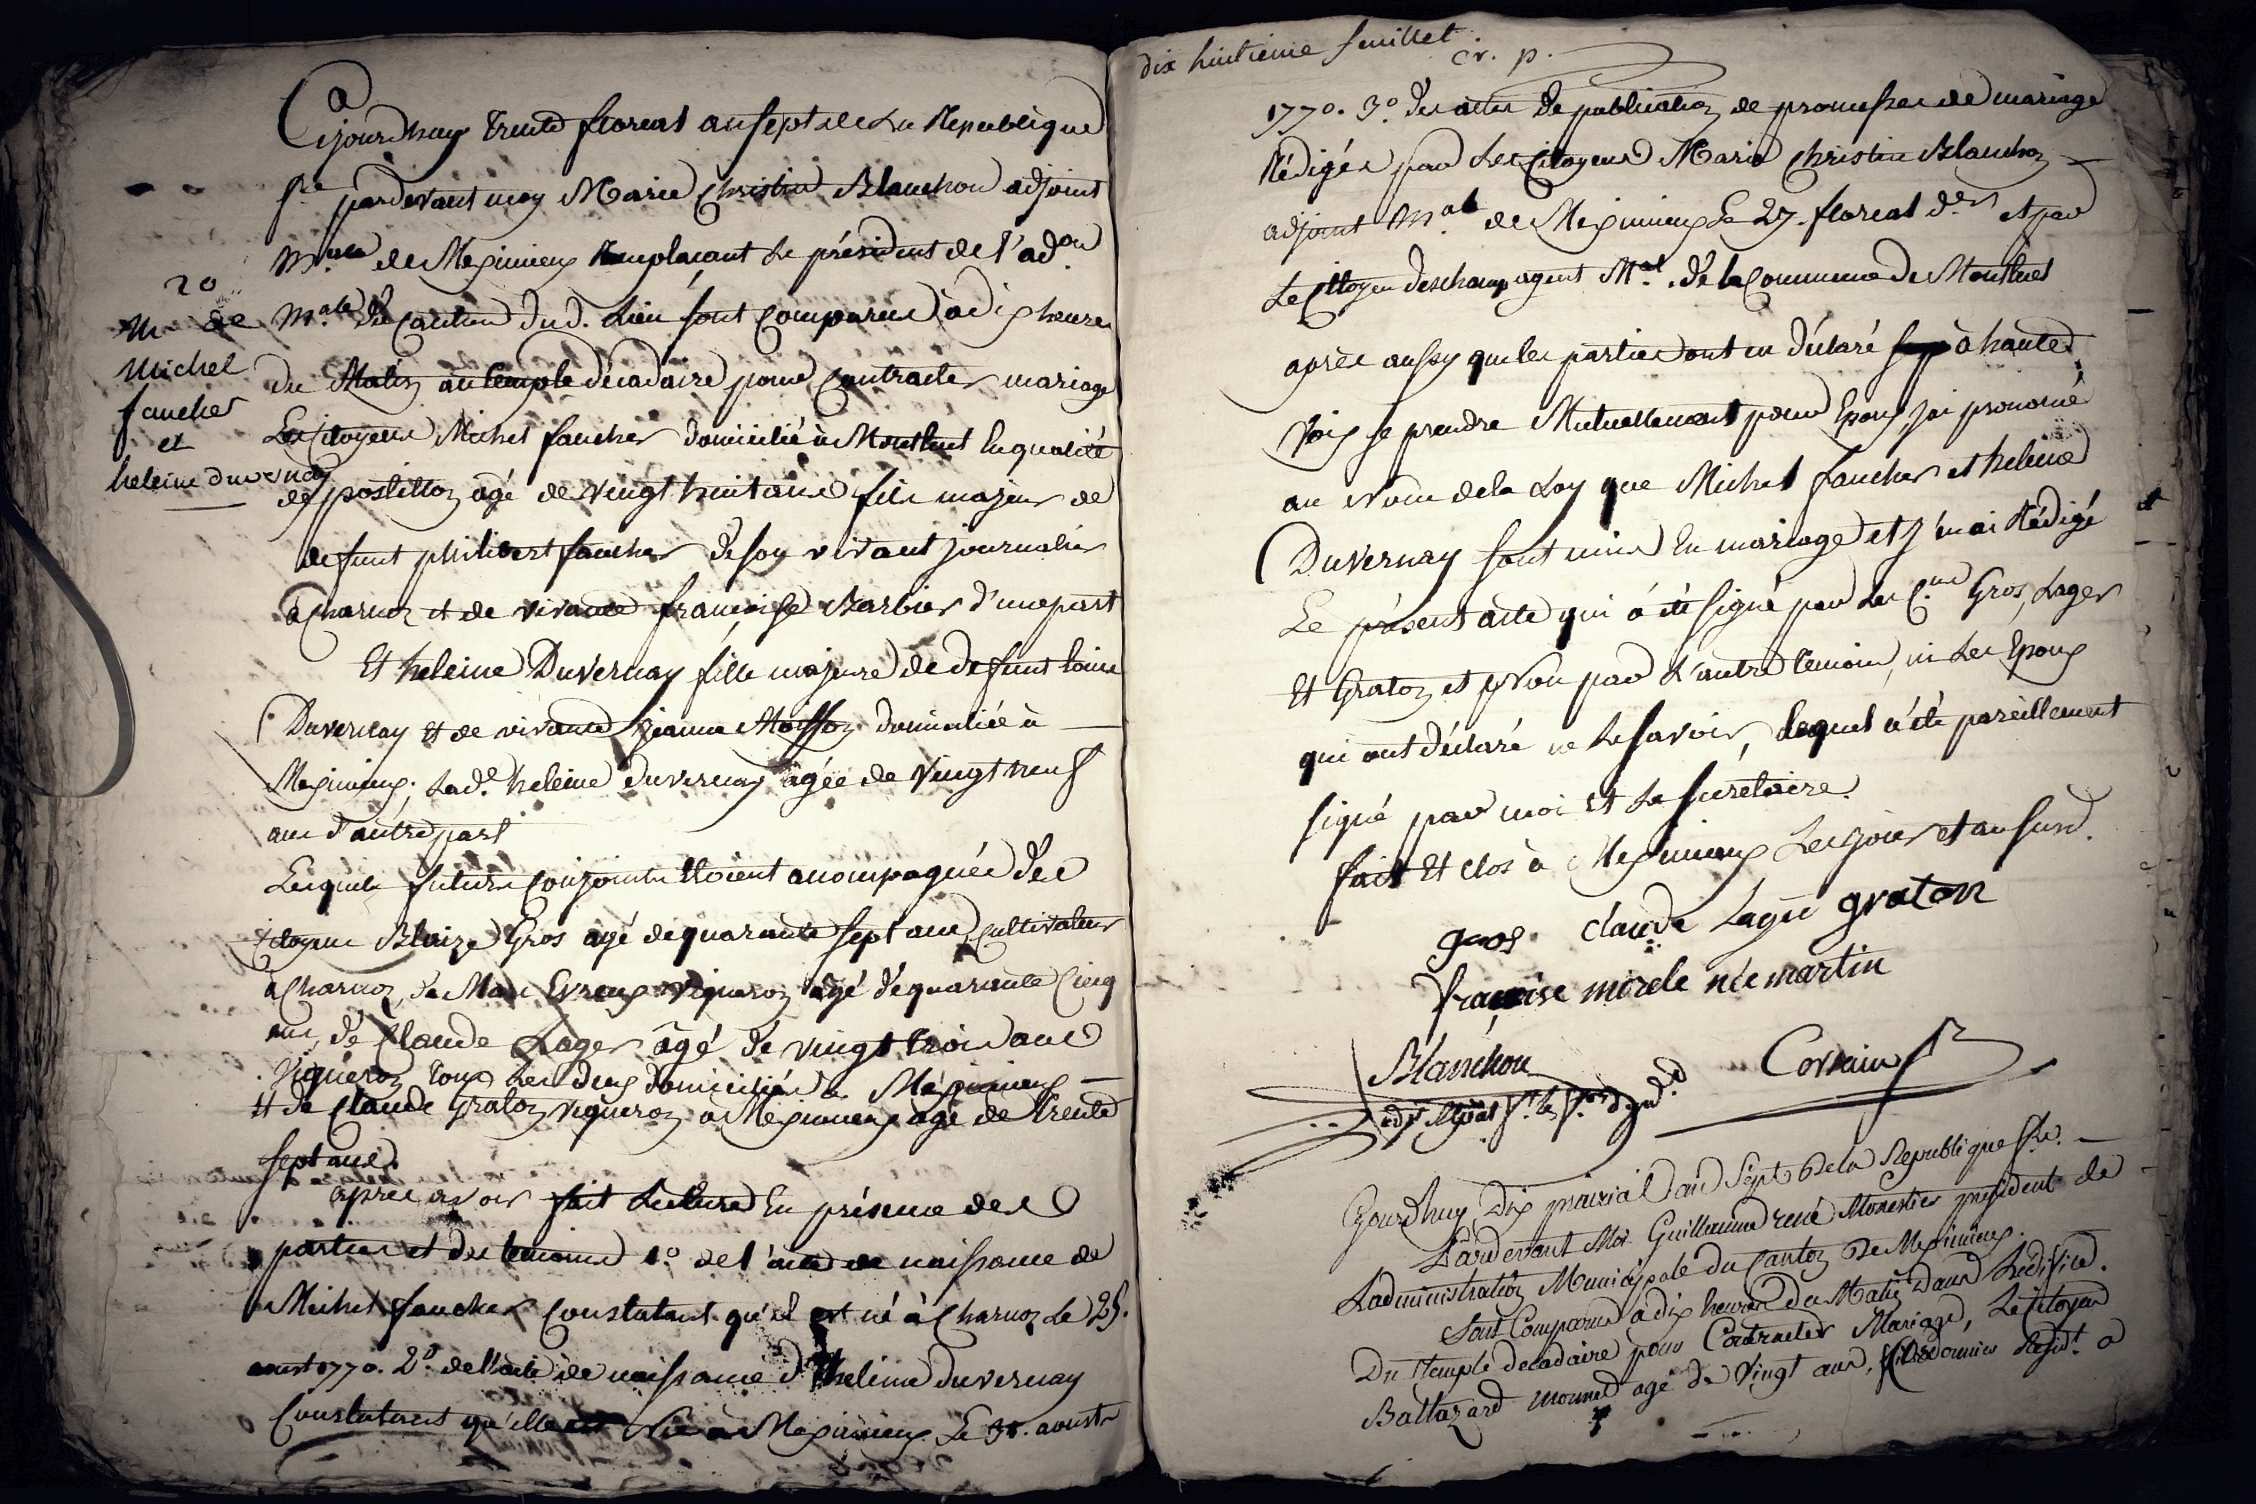 20
m de
michel
faucher
et
heleine duvernay
Cejourdhuy trente floreal an sept de la Republique
f.se pardevant moy Marie Christin Blanchon adjoint
m.pal de Meximieux Remplaçant le président de l'ad.on
m.ale du Canton dud. lieu sont comparus à dix heures
du Matin au temple décadaire pour contracter mariage
Les Citoyens Michel faucher domicilié à Montluel En qualité
de postillon âgé de vingt huit ans fils majeur de
defunt philibert faucher de son vivant journalier
à Charnoz et de vivante françoise Barbier d'une part
Et heleine Duvernay fille majeure de defunt
Duvernay et de vivante jeanne Moisson domiciliée à
Meximieux, lad.e heleine duvernay âgée de vingt neuf
ans d'autre part
Lesquels futurs conjoints étoient accompagnés des
citoyens Blaize Gros agé de quarante sept ans, cultivateur
à Charnoz, de Marc Evreux vigneron âgé de quarante cinq
ans, de Claude Lager âgé de vingt trois ans
vigneron tous les deux domiciliés à Méximieux
Et de Claude Graton vigneron à Meximieux agé de trente
sept ans.
après avoir fait lecture En présence des
parties et des temoins 1.o de l'acte de naissance de
Michel faucher Constatant qu'il est né à Charnoz le 25.
aoust 1770. 2.o de l'acte de naissance d'heleine duvernay
Constatant qu'elle est Née à Meximieux Le 31. aoust
dix huitieme feuillet
cr. p.
1770. 3.o des actes de publication de promesses de mariage
Rédigés par Les Citoyens Marie Christin Blanchon
adjoint M.al de Meximieux Le 27. floreal d.er et par
Le Citoyen deschamp agent M.al de la Commune de Montluel
après aussy que les parties ont eu déclaré à haute
voix se prendre Mutuellement pour Epoux, j'ai prononcé
au Nom de la Loy que Michel faucher et heleine
Duvernay sont unis En mariage et j'en ai Rédigé
Le présent acte qui a été signé par Les C.ens Gros, Lager
Et Graton et Non par L'autre temoin, ni Les Epoux
qui ont déclaré ne Le savoir, lequel a été pareillement
signé par moi Et Le secrétaire.
fait Et clos à Meximieux Les jour et an susd.
gros claude Lagé graton
françoise morele née martin
Blanchon Corsain
adj. Mpal
Cejourdhuy Dix prairial an Sept De la Republique f.se
Pardevant Moi Guillaume rené Monestier president de
Ladministration Municipale du Canton De Meximieux.
Sont Comparus à dix heures du Matin Dans Lédifice
Du Temple decadaire pour Contracter Mariage, Le Citoyen
Baltazard monnet agé De Vingt ans, Resid.t a